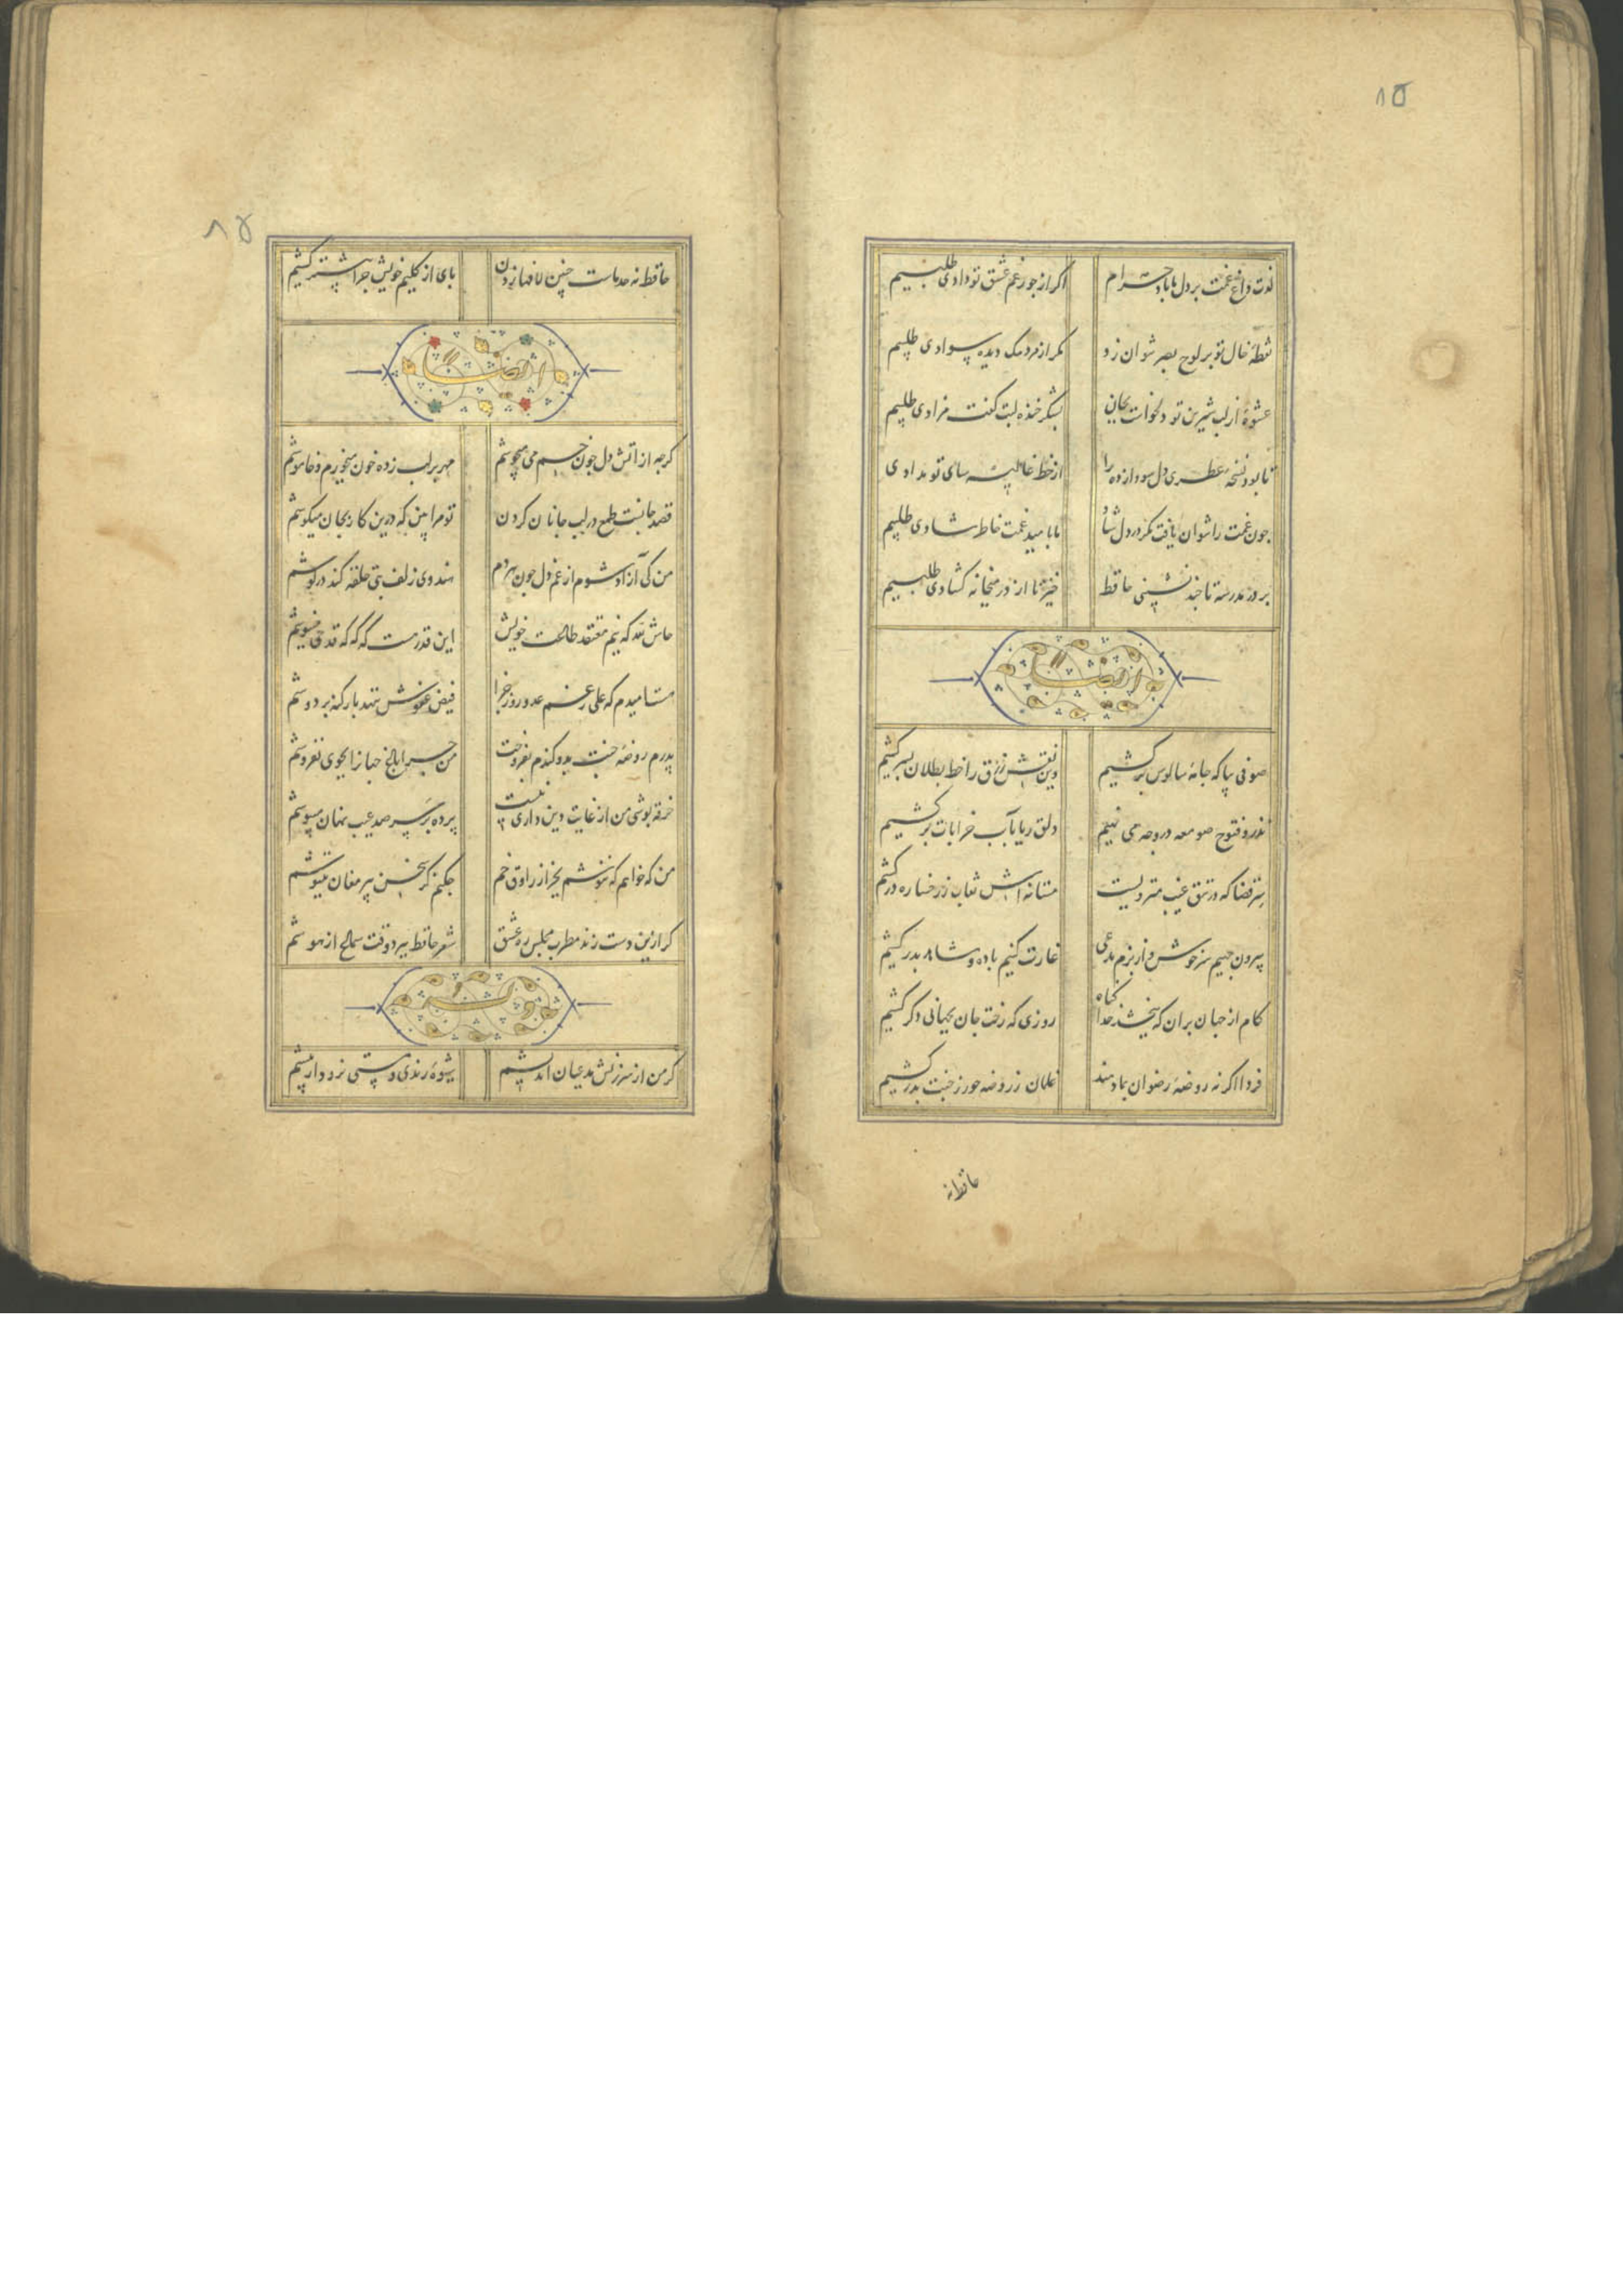 ۸۵
لذت داغ غمت بر دل ما باد حرام
اکر از جور غم عشق تو دادی طلبیم
نقطهٔ خال تو بر لوح بصر نتوان زد
مکر از مردمک دیده سوادی طلبیم
عشوهٔ از لب شیرین تو دل خواست بجان
بشکر خنده لبت کفت مرادی طلبیم
تا بود نسخهٔ عطری دل سودازده را
از خط غالیه سای تو مدادی
چون غمت را نتوان یافت مکر در دل شاد
ما بامید غمت خاطر شادی طلبیم
بر در مدرسه تا چند نشینی حافظ
خیز تا از در میخانه کشادی طلبیم
ایضا
صوفی بیا که جامهٔ سالوس برکشیم
وین نقش زرق را خط بطلان بسر کشیم
نذر و فتوح صومعه در وجه می نهیم
دلق ریا بآب خرابات برکشیم
سر قضا که در تتق غیب منزویست
مستانه اش نقاب ز رخساره درکشیم
بیرون جهیم سرخوش و از بزم مدعی
غارت کنیم باده و شاهد ببر کشیم
کام از جهان بران که ببخشد خدا کناه
روزی که رخت جان بجهانی دکر کشیم
فردا اکر نه روضهٔ رضوان بما دهند
غلمان ز روضه حور ز جنت بدر کشیم
حافظ نه
۸۵
حافظ نه حد ماست چنین لافها زدن
پای از کلیم خویش چرا بیشتر کشیم
ایضا
کرچه از آتش دل چون خم می میجوشم
مهر بر لب زده خون میخورم و خاموشم
قصد جانست طمع در لب جانان کردن
تو مرا بین که درین کار بجان میکوشم
من کی آزاد شوم از غم دل چون هر دم
هندوی زلف بتی حلقه کند در کوشم
حاش لله که نیم معتقد طاعت خویش
این قدر هست که که که قدحی مینوشم
هست امیدم که علی رغم عدو روز جزا
فیض عفوش ننهد بار کنه بر دوشم
پدرم روضهٔ جنت بدو کندم بفروخت
من چرا باغ جهانرا بجوی نفروشم
خرقه پوشی من از غایت دین داری نیست
پرده بر سر صد عیب نهان میپوشم
من که خواهم که ننوشم بجز از راوق خم
چکنم کر سخن پیر مغان ننیوشم
کر ازین دست زند مطرب مجلس ره عشق
شعر حافظ ببرد وقت سماع از هوشم
کر من از سرزنش مدعیان اندیشم
شیوهٔ رندی و مستی نرود از پیشم